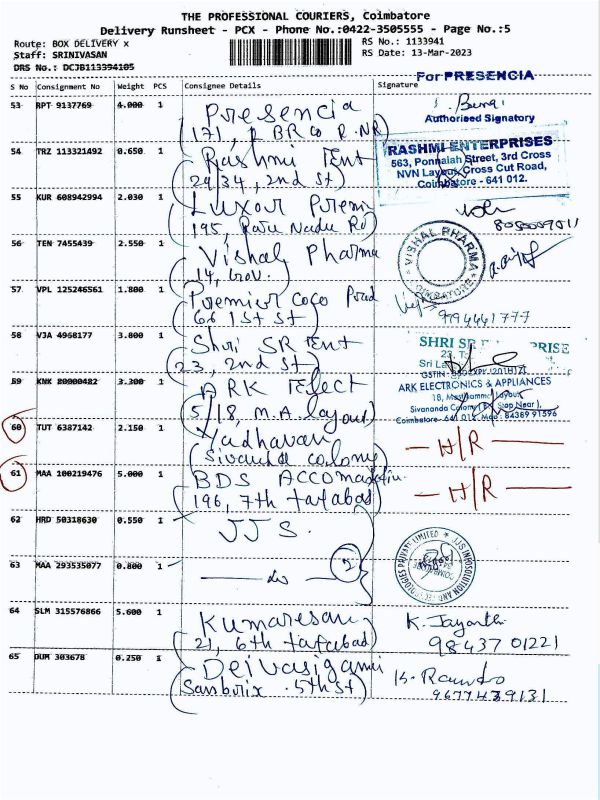 THE PROFESSIONAL COURIERS, Coimbatore
Delivery Runsheet - PCX - Phone No.:0422-3505555 - Page No.:5
Route: BOX DELIVERY x RS No.: 1133941
Staff: SRINIVASAN RS Date: 13-Mar-2023
DRS No.: DCJB113394105
S No Consignment No Weight PCS Consignee Details Signature
For PRESENCIA
53 RPT 9137769 4.000 1 Presencia
(171, BR Co R.NR)
Authorised Signatory
54 TRZ 113321492 0.650 1 Rashmi Ent
(29/34, 2nd St)
RASHMI ENTERPRISES
563, Ponnaiah Street, 3rd Cross
NVN Layout, Cross Cut Road,
Coimbatore - 641 012.
55 KUR 608942994 2.030 1 Luxor Premi
(195, Nadu Rd)
56 TEN 7455439 2.550 1 Vishal Pharma
(14,
VISHAL PHARMA
COIMBATORE
57 VPL 125246561 1.800 1 Premier Coco Prod
(66 1st St)
58 VJA 4968177 3.800 1 Shri SR Ent
(23, 2nd St)
SHRI SR PRISE
59 KNK 80900482 3.300 1 ARK Elect
(5/18, M.A. layout)
ARK ELECTRONICS & APPLIANCES
Sivananda Colony
Coimbatore - 641 012 84389 91596
60 TUT 6387142 2.150 1 Yadhavan
(Sivanda colony)
H/R
61 MAA 100219476 5.000 1 BDS
(196, 7th tatabad)
H/R
62 HRD 50318630 0.550 1 JJS.
63 MAA 293535077 0.800 1 do 2
JJS INFOSOLUTION AND TECHNOLOGIES PRIVATE LIMITED
64 SLM 315576866 5.600 1 Kumaresan
(21, 6th tatabad)
K. Jayanthi
98437 01221
65 DUM 303678 0.250 1 Deivasigami
(Sanborix . 5th St)
9677439131